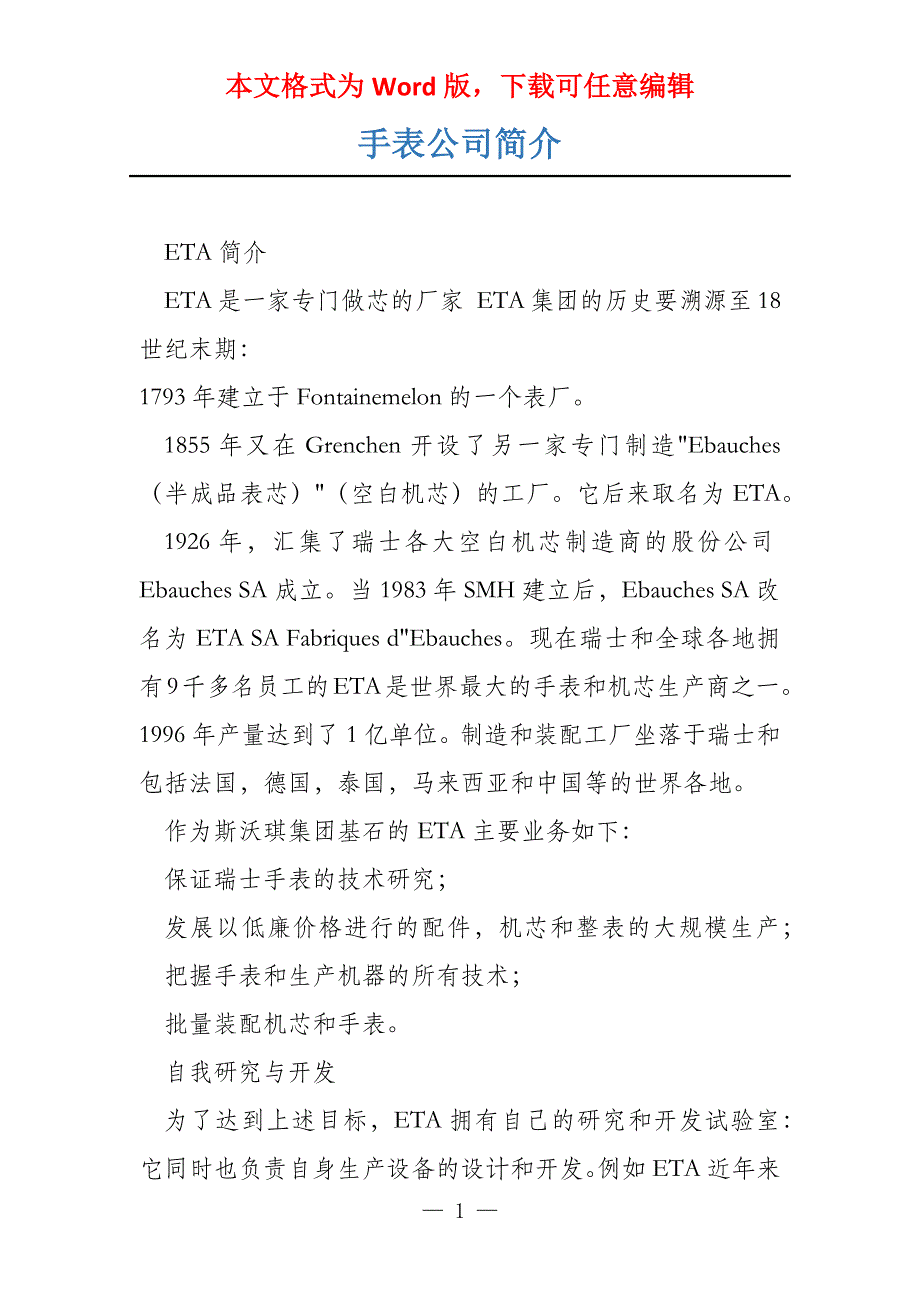 本文格式为 Word 版，下载可任意编辑
手表公司简介
ETA 简介
ETA 是一家专门做芯的厂家 ETA 集团的历史要溯源至 18
世纪末期：
1793 年建立于 Fontainemelon 的一个表厂。
1855 年又在 Grenchen 开设了另一家专门制造"Ebauches
（半成品表芯）"（空白机芯）的工厂。它后来取名为 ETA。
1926 年，汇集了瑞士各大空白机芯制造商的股份公司
Ebauches SA 成立。当 1983 年 SMH 建立后，Ebauches SA 改
名为 ETA SA Fabriques d"Ebauches。现在瑞士和全球各地拥
有 9 千多名员工的 ETA 是世界最大的手表和机芯生产商之一。
1996 年产量达到了 1 亿单位。制造和装配工厂坐落于瑞士和
包括法国，德国，泰国，马来西亚和中国等的世界各地。
作为斯沃琪集团基石的 ETA 主要业务如下：
保证瑞士手表的技术研究；
发展以低廉价格进行的配件，机芯和整表的大规模生产；
把握手表和生产机器的所有技术；
批量装配机芯和手表。
自我研究与开发
为了达到上述目标，ETA 拥有自己的研究和开发试验室：
它同时也负责自身生产设备的设计和开发。例如 ETA 近年来
— 1 —